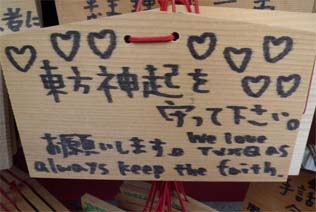 東方神起を
守って下さい。
お願いします。We love TVXQ as
always keep the faith.